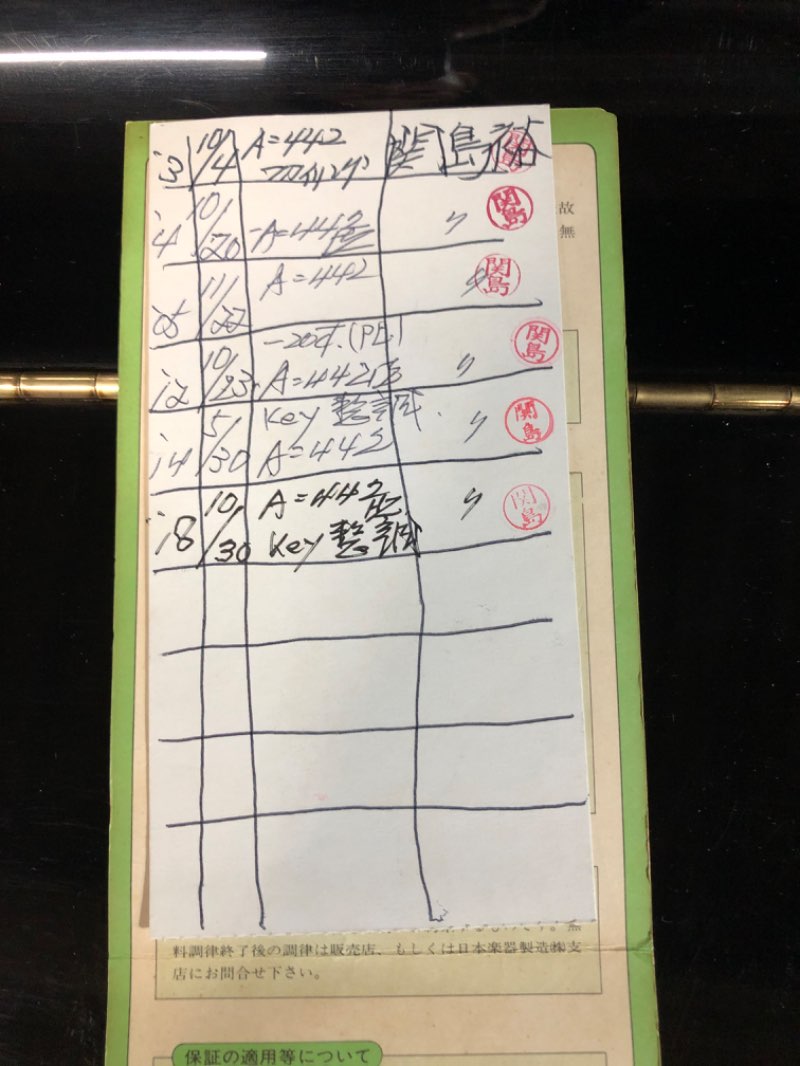 '3 10/4 A=442 関島
'4 10/20 A=442 〃 関島
'05 11/22 A=442 〃 関島
-20¢.(PE)
'12 10/23 A=442 〃 関島
'14 5/30 Key 整調. 〃 関島
A=442
'18 10/30 A=442 〃 関島
Key 整調
故
無
料調律終了後の調律は販売店、もしくは日本楽器製造㈱支
店にお問合せ下さい。
保証の適用等について